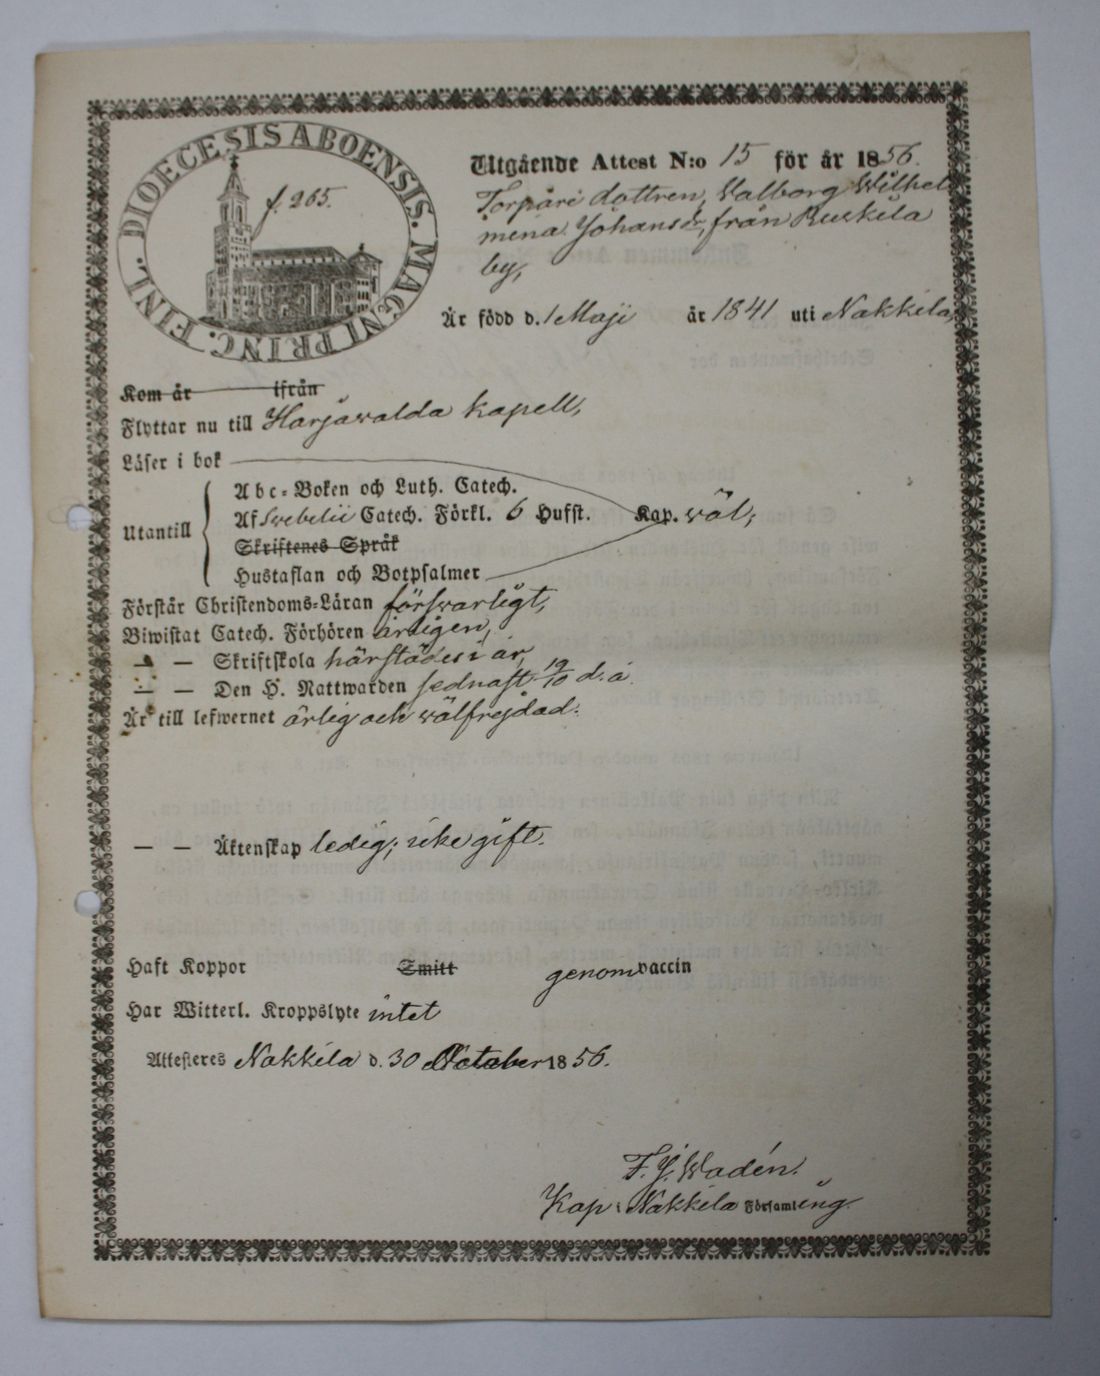 DIOECESIS ABOENSIS. MAGNI PRINC. FINL.
f. 265.
Utgående Attest N:o 15 för år 1856.
Torpare dottren, Walborg Wilhel
mina Johansdr, från Ruskila
by,
Är född d. 1 Maji år 1841 uti Nakkila,
Kom år ifrån
Flyttar nu till Harjawalda Kapell,
Läser i bok
Utantill
Abc-Boken och Luth. Catech.
Af Swebelii Catech. Förkl. 6 Hufst. Kap. wäl;
Skriftenes Språk
Hustaflan och Botpsalmer
Förstår Christendoms-Läran förswarligt,
Biwistat Catech. Förhören årligen,
— — Skriftskola härstädes i år,
— — Den H. Nattwarden sednast 19/10 d. å.
Är till lefwernet ärlig och wälfrejdad.
— — Äktenskap ledig; icke gift.
Haft Koppor Smitt genom vaccin
Har Witterl. Kroppslyte intet
Attesteres Nakkila d. 30 October 1856.
F. J. Wadén.
Kap i Nakkila Församling